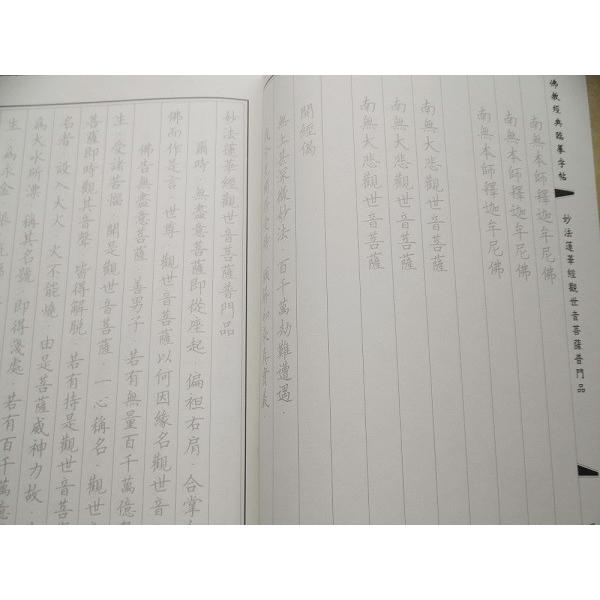 佛教經典臨摹字帖
妙法蓮華經觀世音菩薩普門品
南無本師釋迦牟尼佛
南無本師釋迦牟尼佛
南無本師釋迦牟尼佛
南無大悲觀世音菩薩
南無大悲觀世音菩薩
南無大悲觀世音菩薩
開經偈
無上甚深微妙法．百千萬劫難遭遇．
妙法蓮華經觀世音菩薩普門品
爾時．無盡意菩薩即從座起．偏袒右肩．合掌
佛而作是言．世尊．觀世音菩薩以何因緣名觀世音
佛告無盡意菩薩．善男子．若有無量百千萬億
生．受諸苦惱．聞是觀世音菩薩．一心稱名．觀世
菩薩即時觀其音聲．皆得解脫．若有持是觀世音菩
名者．設入大火．火不能燒．由是菩薩威神力故．
為大水所漂．稱其名號．即得淺處．若有百千萬億
生．為求金